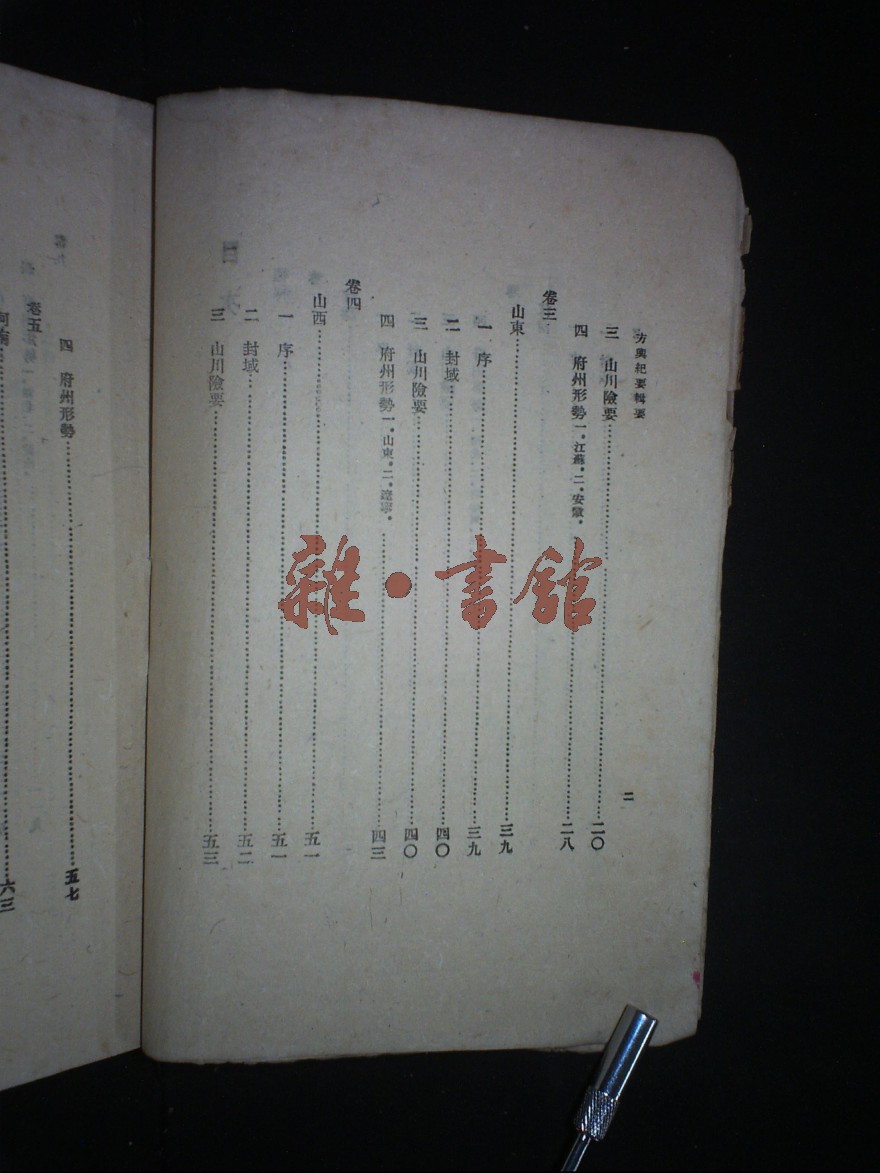 方輿紀要輯要
二
三 山川險要……二〇
四 府州形勢 一。江蘇。二。安徽。……二八
卷三
山東……三九
一 序……三九
二 封域……四〇
三 山川險要……四〇
四 府州形勢 一。山東。二。遼寧。……四三
卷四
山西……五一
一 序……五一
二 封域……五二
三 山川險要……五三
四 府州形勢……五七
卷五
河南……六三
雜·書館